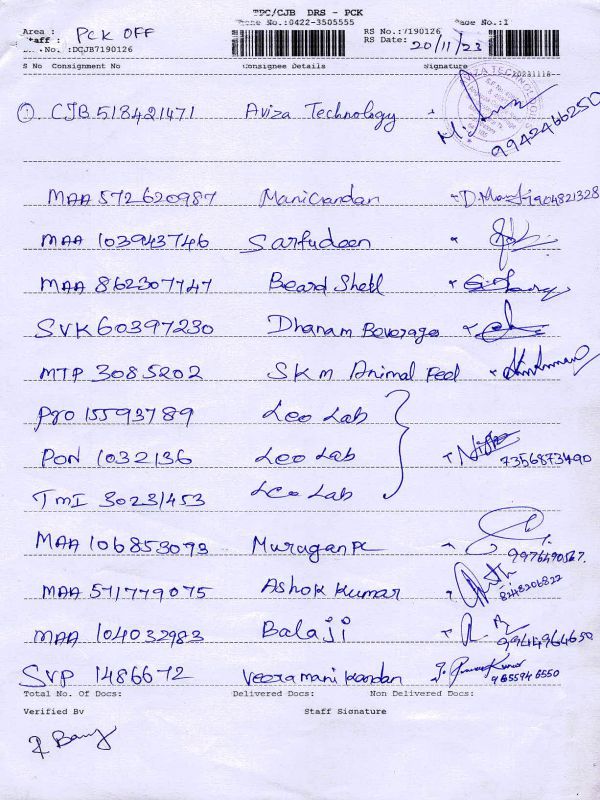 TPC/CJB DRS - PCK
Phone No.:0422-3505555
Area : PCK OFF
RS No.:7190126 Page No.:1
Staff :
RS Date: 20/11/23
No.:DCJB7190126
S No Consignment No Consignee Details Signature
① CJB 518421471 Aviza Technology 9942466250
MAA 572620987 Manicandan
MAA 103943746 Sarfudeen
MAA 862307747 Beard Shell
SVK 60397230 Dhanam Beverages
MTP 3085202 SKM Animal Feed
PYO 15593789 Leo Lab
PON 1032136 Leo Lab 7356873490
TMI 30231453 Leo Lab
MAA 106853093 Murugan PC
MAA 571779075 Ashok Kumar 8248206822
MAA 104032983 Balaji 9944964650
SVP 1486672 Veeramani kandan 9655946550
Total No. Of Docs: Delivered Docs: Non Delivered Docs:
Verified By Staff Signature